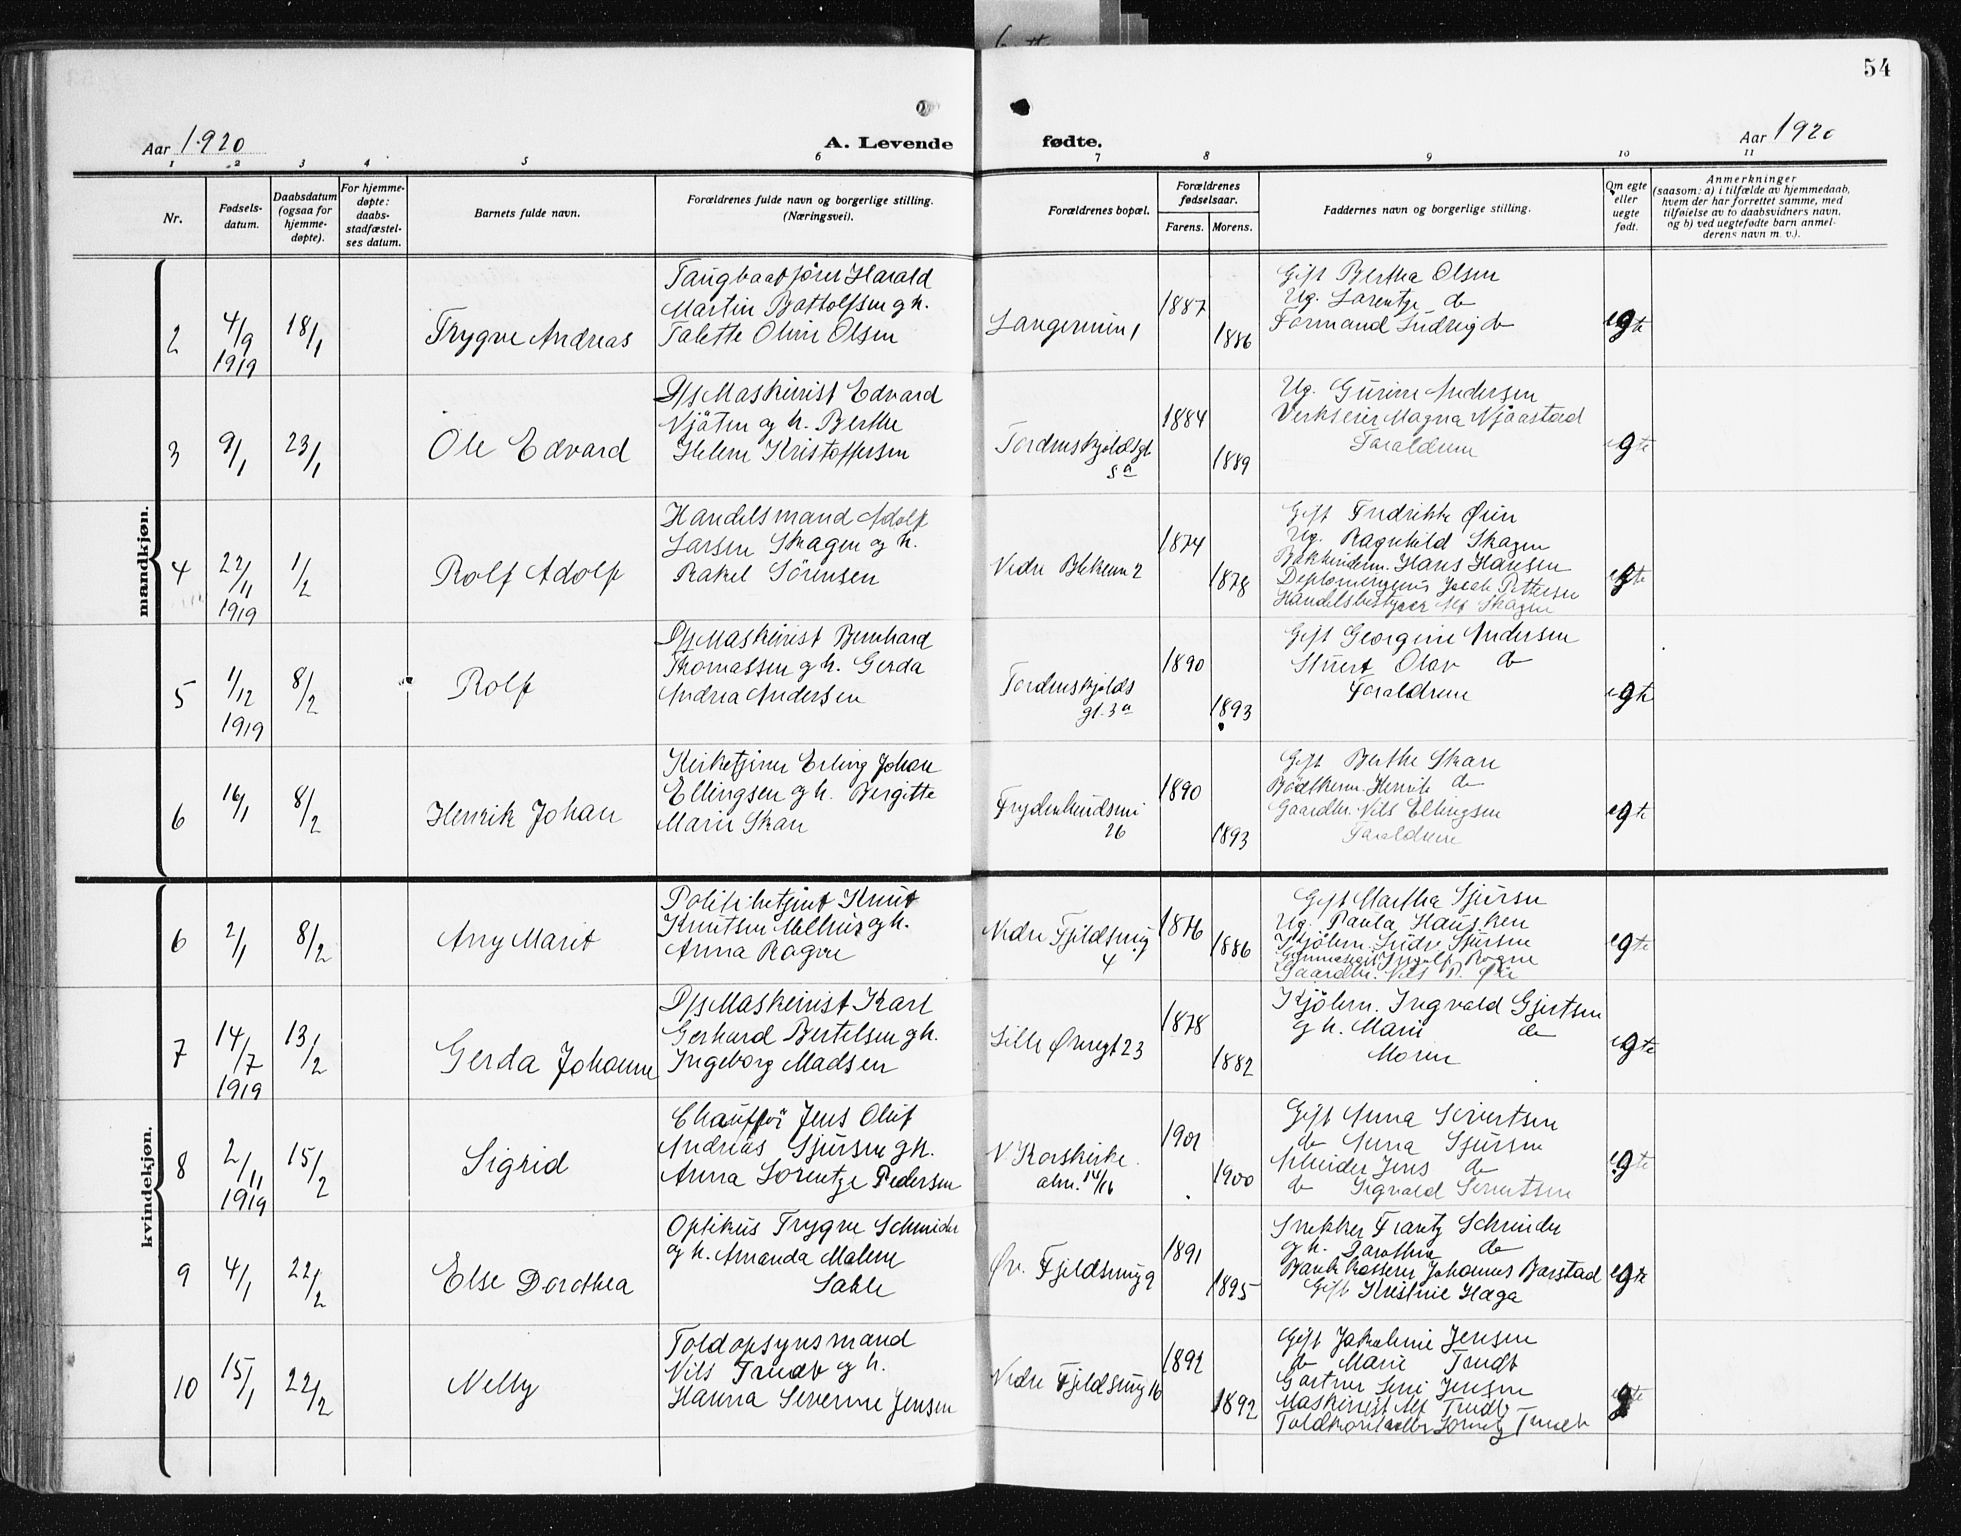 54
Aar 1920
A. Levende
fødte.
Aar 1920
1 2 3 4 5 6 7 8 9 10 11
Nr.
Fødsels-
datum.
Daabsdatum
(ogsaa for
hjemme-
døpte).
For hjemme-
døpte:
daabs-
stadfæstel-
ses datum.
Barnets fulde navn.
Forældrenes fulde navn og borgerlige stilling.
(Næringsvei).
Forældrenes bopæl.
Forældrenes
fødselsaar.
Farens. Morens.
Faddernes navn og borgerlige stilling.
Om egte
eller
uegte
født.
Anmerkninger
(saasom: a) i tilfælde av hjemmedaab,
hvem der har forrettet samme, med
tilføielse av to daabsvidners navn,
og b) ved uegtefødte barn anmel-
derens navn m. v.).
mandkjøn.
2
4/9
1919
18/1
Trygve Andreas
Taugbaatfører Harald
Martin Battolfsen g h.
Talette Oline Olsen
1887
1886
Gift Bertha Olsen
Ug. Larentze do
Formand Ludvig do
egte
3
9/1
23/1
Ole Edvard
D/s Maskinist Edvard
Njåten og h. Berthe
Helene Kristoffersen
Tordenskjoldsgt
5a
1884
1889
Ug. Gurine Andersen
Magna Njaastad
Forældrene
egte
4
22/11
1919
1/2
Rolf Adolf
Handelsmand Adolf
Larsen Skagen og h.
Rakel Sørensen
Nedre Blekevn 2
1874
1878
Gift Fredrikke Øien
Ug. Ragnhild Skagen
Bokbinderm. Hans Hansen
Jacob Pettersen
Handelsbestyrer Alf Skagen
egte
5
1/12
1919
8/2
Rolf
D/s Maskinist Bernhard
Thomassen g h. Gerda
Andrea Andersen
Tordenskjolds
gt. 3a
1890
1893
Gift Georgine Andersen
Stuert Olav do
Forældrene
egte
6
16/1
8/2
Henrik Johan
Kirketjener Erling Johan
Ellingsen g h. Birgitte
Marie Skare
26
1890
1893
Gift Berthe Skare
Bødkerm. Henrik do
Gaardbr. Nils Ellingsen
Forældrene
egte
kvindekjøn.
6
2/1
8/2
Any Marit
Politibetjent Knut
Knutsen Melhus g h.
Anna Rogne
Nedre Fjeldsmug
4
1876
1886
Gift Martha Sjursen
Ug. Paula Hausken
Kjølem. Sjursen
Ingolf Rogne
Gaardbr. Nils P. Øie
egte
7
14/7
1919
13/2
Gerda Johanne
D/s Maskinist Karl
Gerhard Bertelsen g h.
Ingeborg Madsen
Lille Øvregt 23
1878
1882
Kjølem. Ingvald Gjertsen
g h. Marie do
Moren
egte
8
2/11
1919
15/2
Sigrid
Chauffør Jens Oluf
Andreas Sjursen g h.
Anna Lorentze Pedersen
N Korskirke
alm. 14/16
1901
1900
Gift Anna Sivertsen
do Anna Sjursen
Arbeider Jens do
do Sigvald Sivertsen
egte
9
4/1
22/2
Else Dorothea
Optikus Trygve Schneider
og h. Amanda Malene
Sable
Øv. Fjeldsmug 9
1891
1895
Snekker Frantz Schneider
g h. Dorothea do
Bankkasserer Johannes Barstad
Gift Kristine Haga
egte
10
15/1
22/2
Nelly
Toldopsynsmand
Nils Tendt g h.
Hanna Severine Jensen
Nedre Fjeldsmug 16
1892
1892
Gift Jakobine Jensen
do Marie Tendt
Gartner Jensen
Maskinist Alf Tendt
Toldkontrollør Tendt
egte